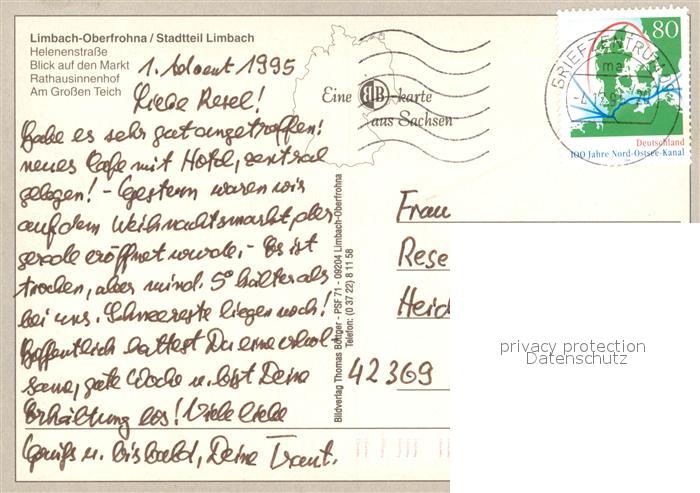 Limbach-Oberfrohna / Stadtteil Limbach
Helenenstraße
Blick auf den Markt
Rathausinnenhof
Am Großen Teich
1. Advent 1995
Liebe Resel!
Habe es sehr gut angetroffen!
neues Cafe mit Hotel, zentral
gelegen! - Gestern waren wir
auf dem Weihnachtsmarkt, der
gerade eröffnet wurde. - Es ist
trocken, aber mind. 5° kälter als
bei uns. Schneereste liegen noch!
Hoffentlich hattest Du eine erhol-
same, gute Woche u. bist Deine
Erkältung los! Viele liebe
Grüße u. bis bald, Deine Traut.
Eine BB-karte
aus Sachsen
Bildverlag Thomas Böttger - PSF 71 - 09204 Limbach-Oberfrohna
Telefon: (0 37 22) 8 11 58
BRIEFZENTRUM
80
Deutschland
100 Jahre Nord-Ostsee-Kanal
Frau
Rese
Heid
42369
privacy protection
Datenschutz